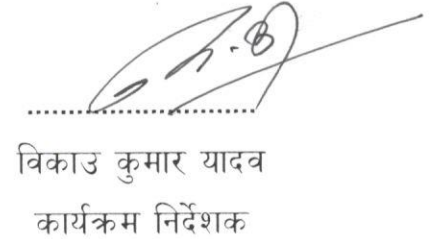 विकाउ कुमार यादव
कार्यक्रम निर्देशक